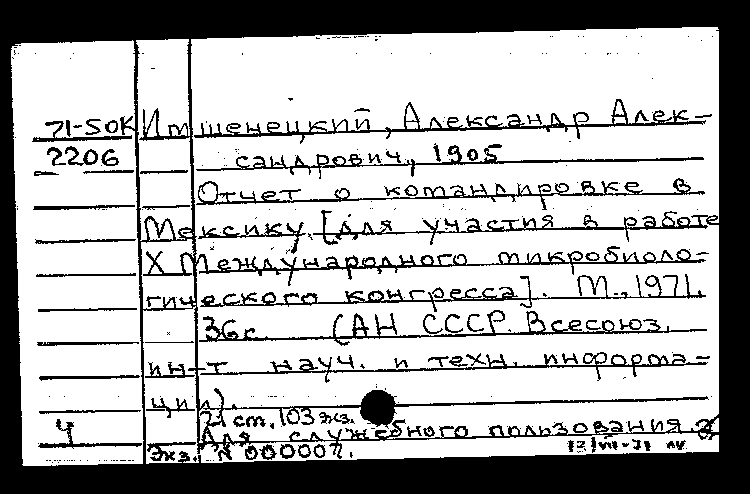 71-50К Имшенецкий, Александр Алек-
2206 сандрович, 1905
Отчет о командировке в
Мексику. [Для участия в работе
X Международного микробиоло-
гического конгресса]. М., 1971.
36с. (АН СССР. Всесоюз.
ин-т науч. и техн. информа-
ции).
21 ст. 103 экз.
Ч Для служебного пользования.
Экз. N 000007. 12/VII-71